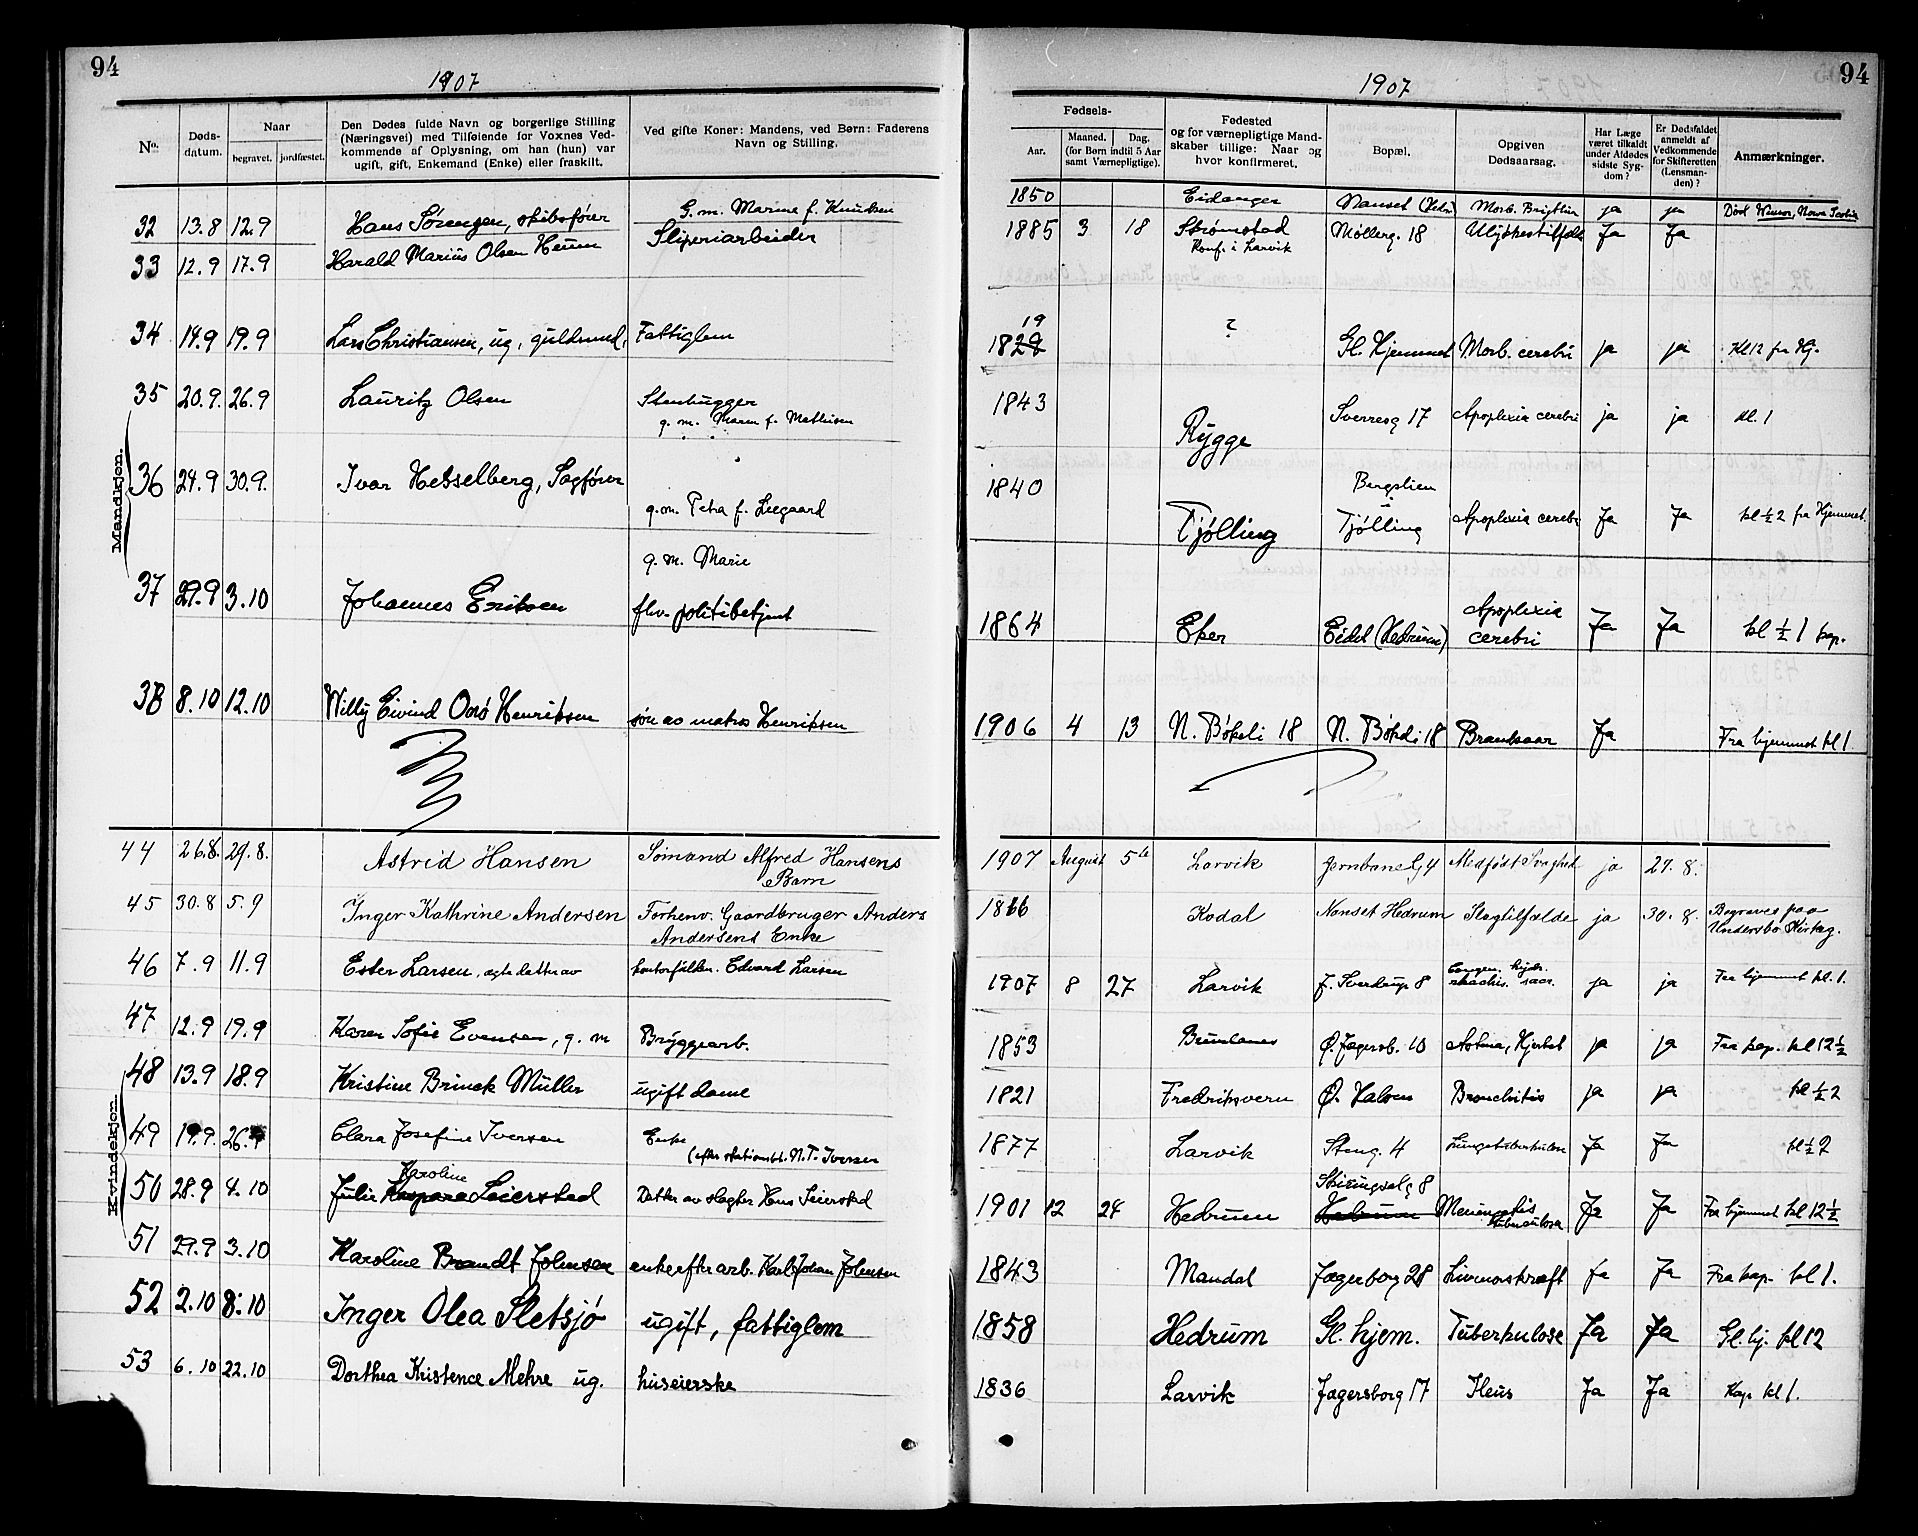 94
1907
No.
Døds-
datum.
Naar
begravet. jordfæstet.
Den Dødes fulde Navn og borgerlige Stilling
(Næringsvei) med Tilføiende for Voxnes Ved-
kommende af Oplysning, om han (hun) var
ugift, gift, Enkemand (Enke) eller fraskilt.
Ved gifte Koner: Mandens, ved Børn: Faderens
Navn og Stilling.
Mandkjøn.
32 13.8 12.9 Hans Sørensen, skibsfører G. m. Marine f. Knudsen
33 12.9 17.9 Harald Marius Olsen Heum Sliperiarbeider
34 14.9 19.9 Lars Christiansen, ug, guldsmed, Fattiglem
35 20.9. 26.9 Lauritz Olsen Stenhugger
g. m. Maren f. Mathisen
36 24.9 30.9. Ivar Hesselberg, Sagfører
g. m. Petra f. Leegaard
g. m. Marie
37 29.9 3.10 Johannes Eriksen fhv. politibetjent
38 8.10 12.10 Willy Eivind Onsø Henriksen søn av matros Henriksen
Kvindekjøn.
44 26.8. 29.8. Astrid Hansen Sømand Alfred Hansens
Barn
45 30.8 5.9 Inger Kathrine Andersen Forhenv. Gaardbruger Anders
Andersens Enke
46 7.9 11.9 Ester Larsen, egte datter av kontorfuldm. Edvard Larsen
47 12.9 19.9 Karen Sofie Evensen, g. m Bryggearb.
48 13.9 18.9 Kristine Brinck Müller ugift dame
49 19.9. 26.9 Clara Josefine Iversen Enke
(efter stationsbt. N. T. Iversen
Karoline
50 28.9 4.10 Julie Kaspara Leierstad Datter av slagter Hans Leierstad
51 29.9 3.10 Karoline Brandt Johnsen enke efter arb. Karl Johan Johnsen
52 2.10 8.10 Inger Olea Sletsjø ugift, fattiglem
53 6.10 22.10 Dorthea Kristence Mehre ug. huseierske
94
1907
Fødsels-
Aar.
Maaned. Dag.
(for Børn indtil 5 Aar
samt Værnepligtige).
Fødested
og for værnepligtige Mand-
skaber tillige: Naar og
hvor konfirmeret.
Bopæl.
Opgiven
Dødsaarsag.
Har Læge
været tilkaldt
under Afdødes
sidste Syg-
dom?
Er Dødsfaldet
anmeldt af
Vedkommende
for Skifteretten
(Lensman-
den)?
Anmærkninger.
1850 Eidanger Nanset (Hedr) Morb. Brigthii ja ja Død Winsor, Nova Scotia
1885 3 18 Strømstad Møllerg. 18 Ulykkestilfælde Ja Ja
Konf. i Larvik
19
1828 ? Gl. Hjemmet Morb. cerebri ja ja Kl 12 fra Hj.
1843 Rygge Sverresg 17 Apoplexia cerebri ja ja kl. 1
1840 Tjølling Bergslien
Tjølling Apoplexia cerebri Ja Ja kl ½ 2 fra Hjemmet
1864 Eker Eidet (Hedrum) Apoplexia
cerebri Ja Ja kl ½ 1 kap.
1906 4 13 N. Bøkeli 18 N. Bøkeli 18 Brandsaar Ja Fra hjemmet kl 1.
1907 August 5te Larvik Jernbaneg 4 Medfødt Svaghed ja 27. 8.
1866 Kodal Nanset Hedrum Slagtilfælde ja 30. 8. Begraves paa
Undersbo Kirkeg.
1907 8 27 Larvik J. Sverdrup 8 Congen. hydr.
rhachis. ja ja Fra hjemmet kl. 1.
1853 Brunlanes Ø. Jagersb. 10 Astma, Hjertet ja ja Fra kap. kl 12½
1821 Fredriksvern Ø. Halsen Bronchitis ja ja kl ½ 2
1877 Larvik Steng. 4 Lungetuberkulose Ja Ja kl ½ 2
Skiringsalg 8
1901 12 24 Hedrum Hedrum Meningitis
tuberculosa Ja Ja Fra hjemmet kl 12½
1843 Mandal Jagerborg 28 Livmorskræft ja Ja Fra kap. kl 1.
1858 Hedrum Gl. hjem. Tuberkulose Ja Ja Gl. hj. kl 12
1836 Larvik Jagersborg 17 Ileus Ja Ja Kap kl 1.